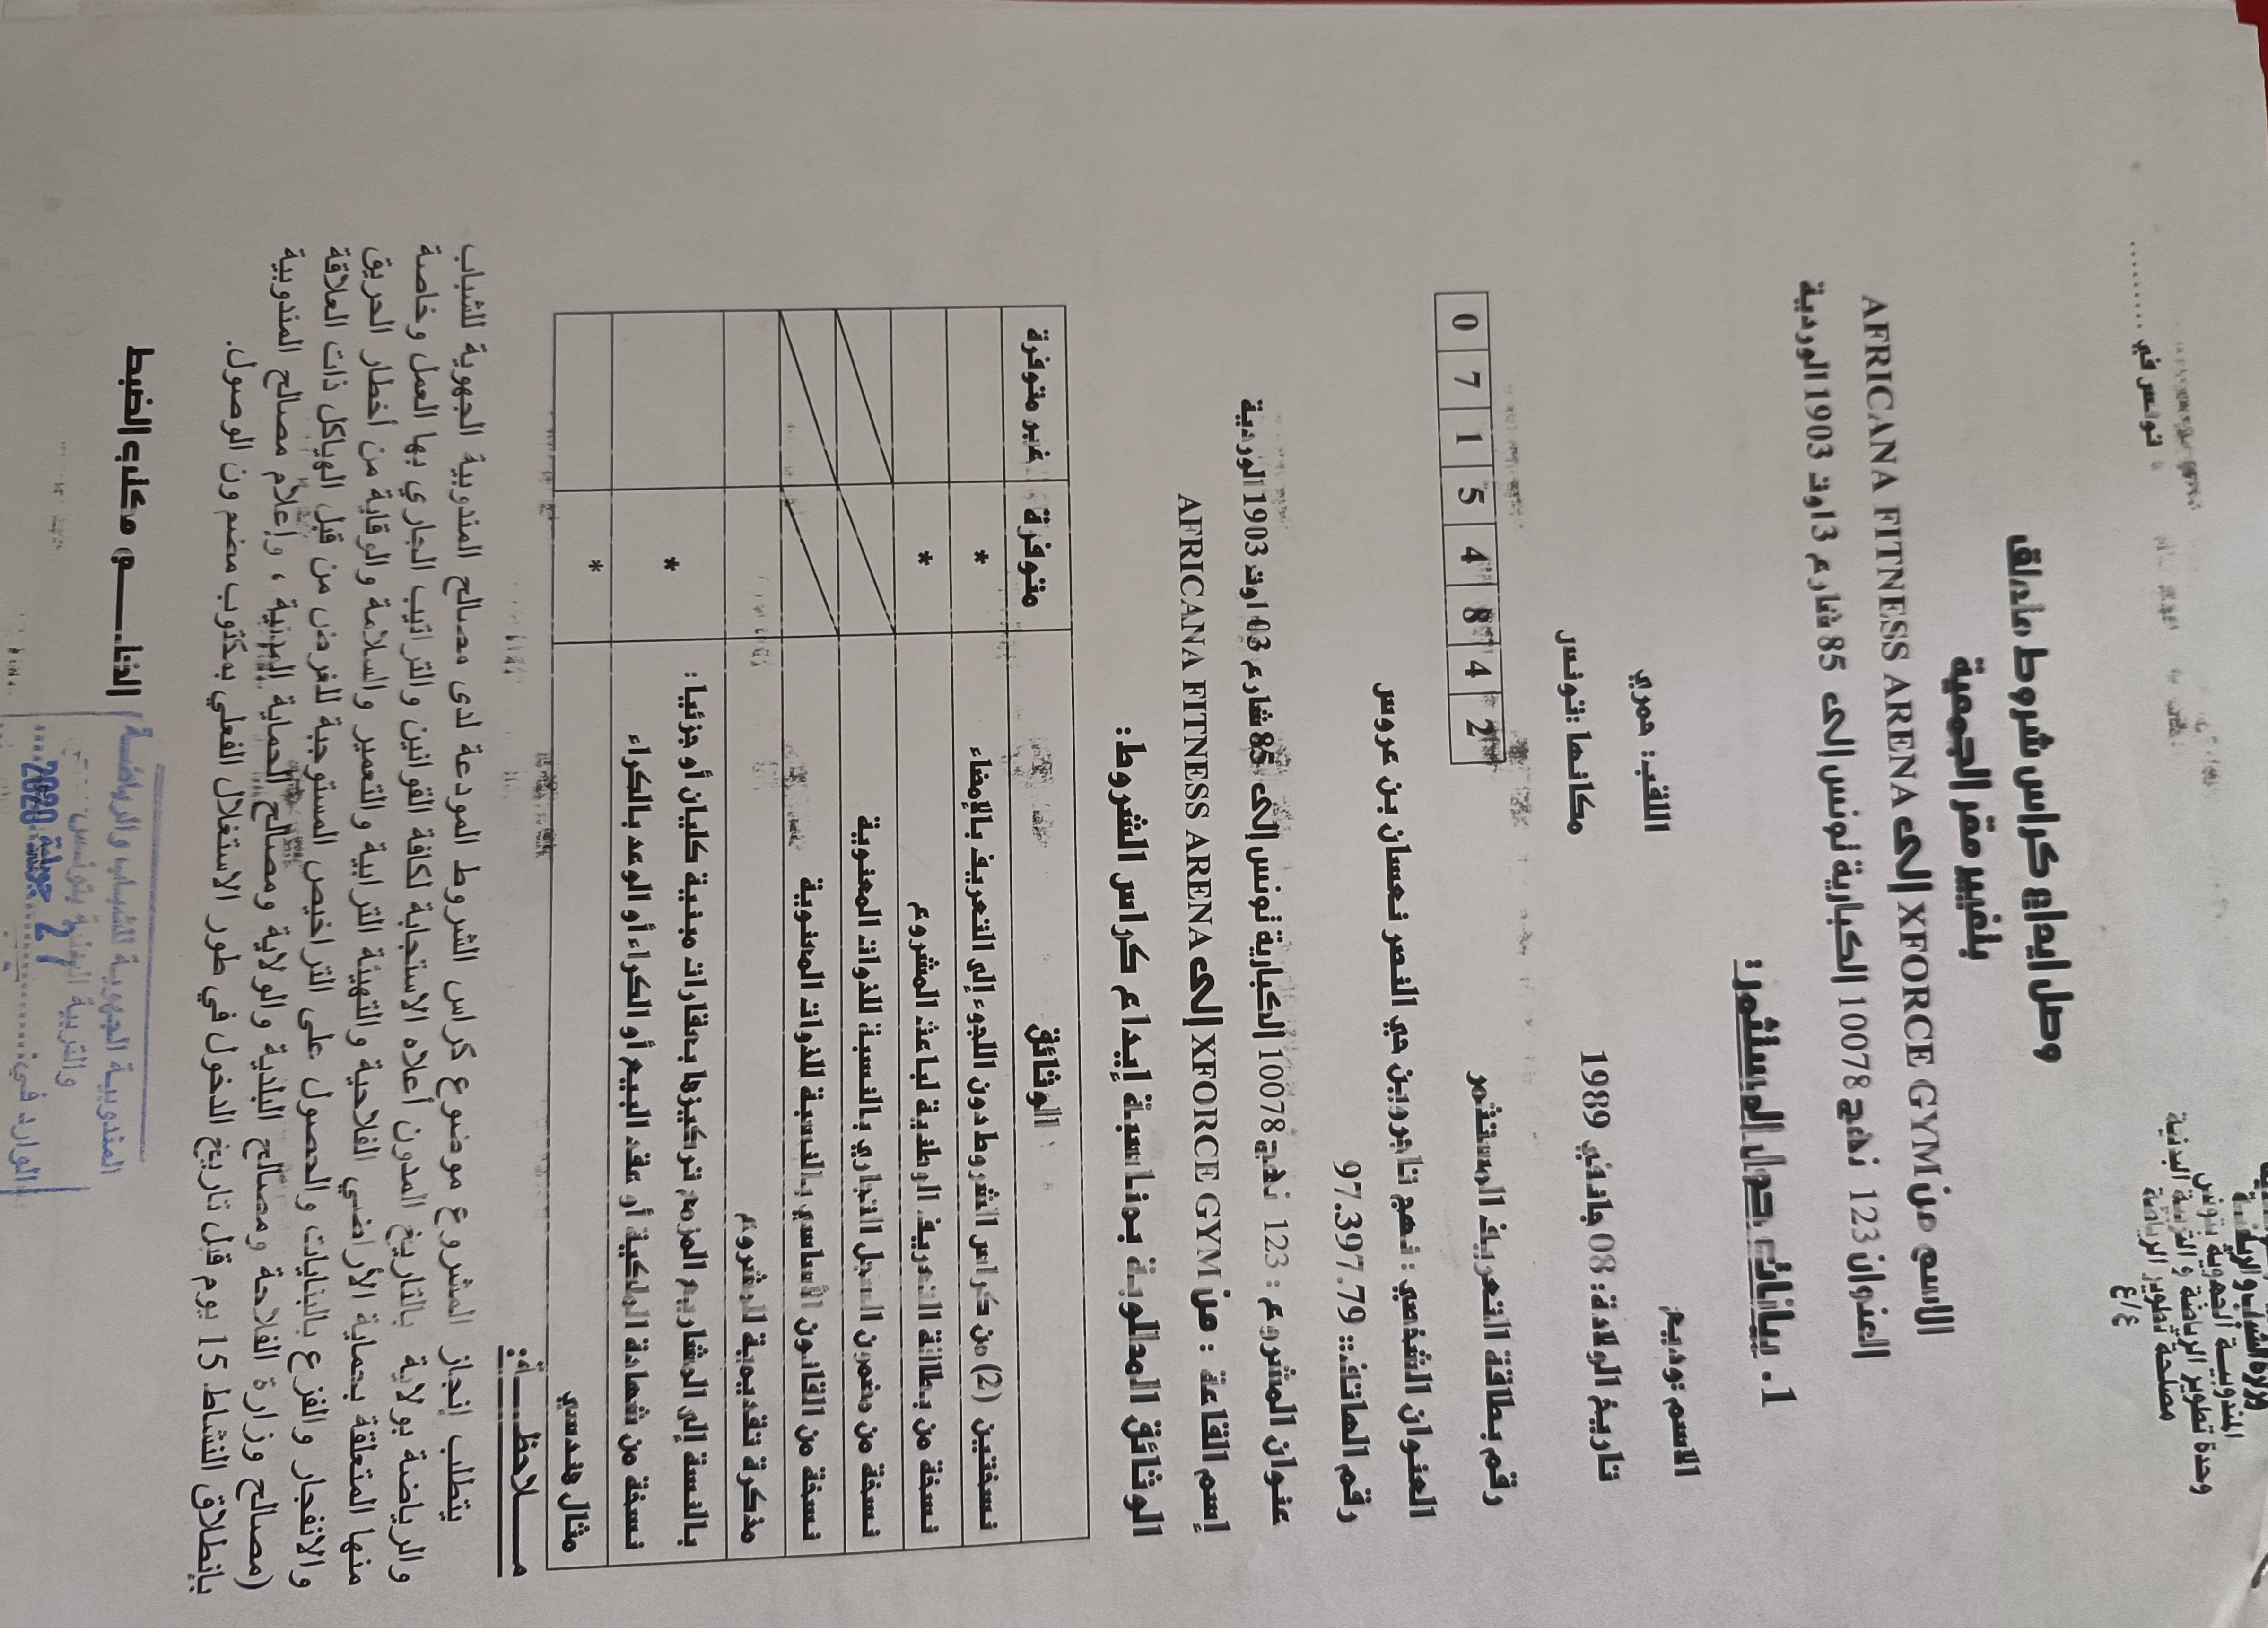 وزارة الشباب والرياضة
المندوبية الجهوية بتونس
وحدة تطوير الرياضة والتربية البدنية
مصلحة تطوير الرياضة
ع/ع
تونس في .........
وصل ايداع كراس شروط متعلق
بتغيير مقر الجمعية
الاسم من AFRICANA FITNESS ARENA إلى XFORCE GYM
العنوان 123 نهج 10078 الكبارية تونس إلى 85 شارع 3 اوت 1903 الوردية
1. بيانات حول المستثمر:
الاسم :وديع اللقب: عمري
تاريخ الولادة: 08 جانفي 1989 مكانها :تونس
رقم بطاقة التعريف المستثمر 0 7 1 5 4 8 4 2
العنوان الشخصي : نهج تاجروين حي النصر نعسان بن عروس
رقم الهاتف: 97.397.79
عنوان المشروع : 123 نهج 10078 الكبارية تونس إلى 85 شارع 03 اوت 1903 الوردية
إسم القاعة : من AFRICANA FITNESS ARENA إلى XFORCE GYM
الوثائق المطلوبة بمناسبة إيداع كراس الشروط:
الوثائق متوفرة غير متوفرة
نسختين (2) من كراس الشروط دون اللجوء إلى التعريف بالإمضاء *
نسخة من بطاقة التعريف الوطنية لباعث المشروع *
نسخة من مضمون السجل التجاري بالنسبة للذوات المعنوية
نسخة من القانون الأساسي بالنسبة للذوات المعنوية
مذكرة تقديمية للمشروع
بالنسبة إلى المشاريع المزمع تركيزها بعقارات مبنية كليا أو جزئيا: *
نسخة من شهادة الملكية أو عقد البيع أو الكراء أو الوعد بالكراء
مثال هندسي *
مـــلاحظـــة:
يتطلب إنجاز المشروع موضوع كراس الشروط المودعة لدى مصالح المندوبية الجهوية للشباب
والرياضة بولاية بالتاريخ المدون أعلاه الاستجابة لكافة القوانين والتراتيب الجاري بها العمل وخاصة
منها المتعلقة بحماية الأراضي الفلاحية والتهيئة الترابية والتعمير والسلامة والوقاية من أخطار الحريق
والانفجار والفزع بالبنايات والحصول على التراخيص المستوجبة للغرض من قبل الهياكل ذات العلاقة
(مصالح وزارة الفلاحة ومصالح البلدية والولاية ومصالح الحماية المدنية ، وإعلام مصالح المندوبية
بإنطلاق النشاط 15 يوم قبل تاريخ الدخول في طور الاستغلال الفعلي بمكتوب مضمون الوصول.
الختـــم مكتب الضبط
المندوبية الجهوية للشباب والرياضة
والتربية البدنية بتونس
الوارد في: 27 جويلية 2020